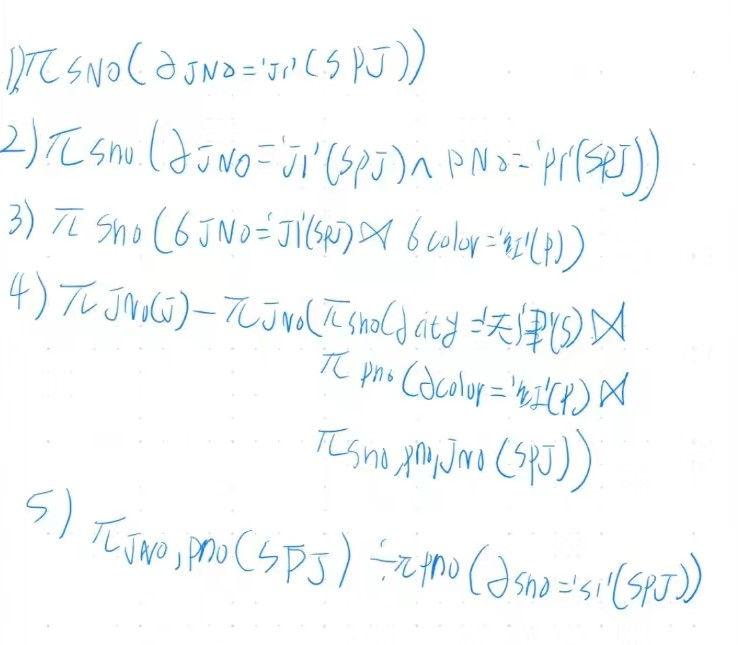 1) π SNO(∂ JNO='J1'(SPJ))
2) π sno (∂ JNO='J1'(SPJ)∧ PNO='P1'(SPJ))
3) π sno (6 JNO='J1'(SPJ)⋈ 6 color='红'(P))
4) π JNo(J)-π JNo(π sno(∂ city='天津'(S)⋈
π pno (∂color='红'(P)⋈
π sno,pno,JNO (SPJ))
5) π JNO,pno(SPJ)÷π pno(∂sno='s1'(SPJ))